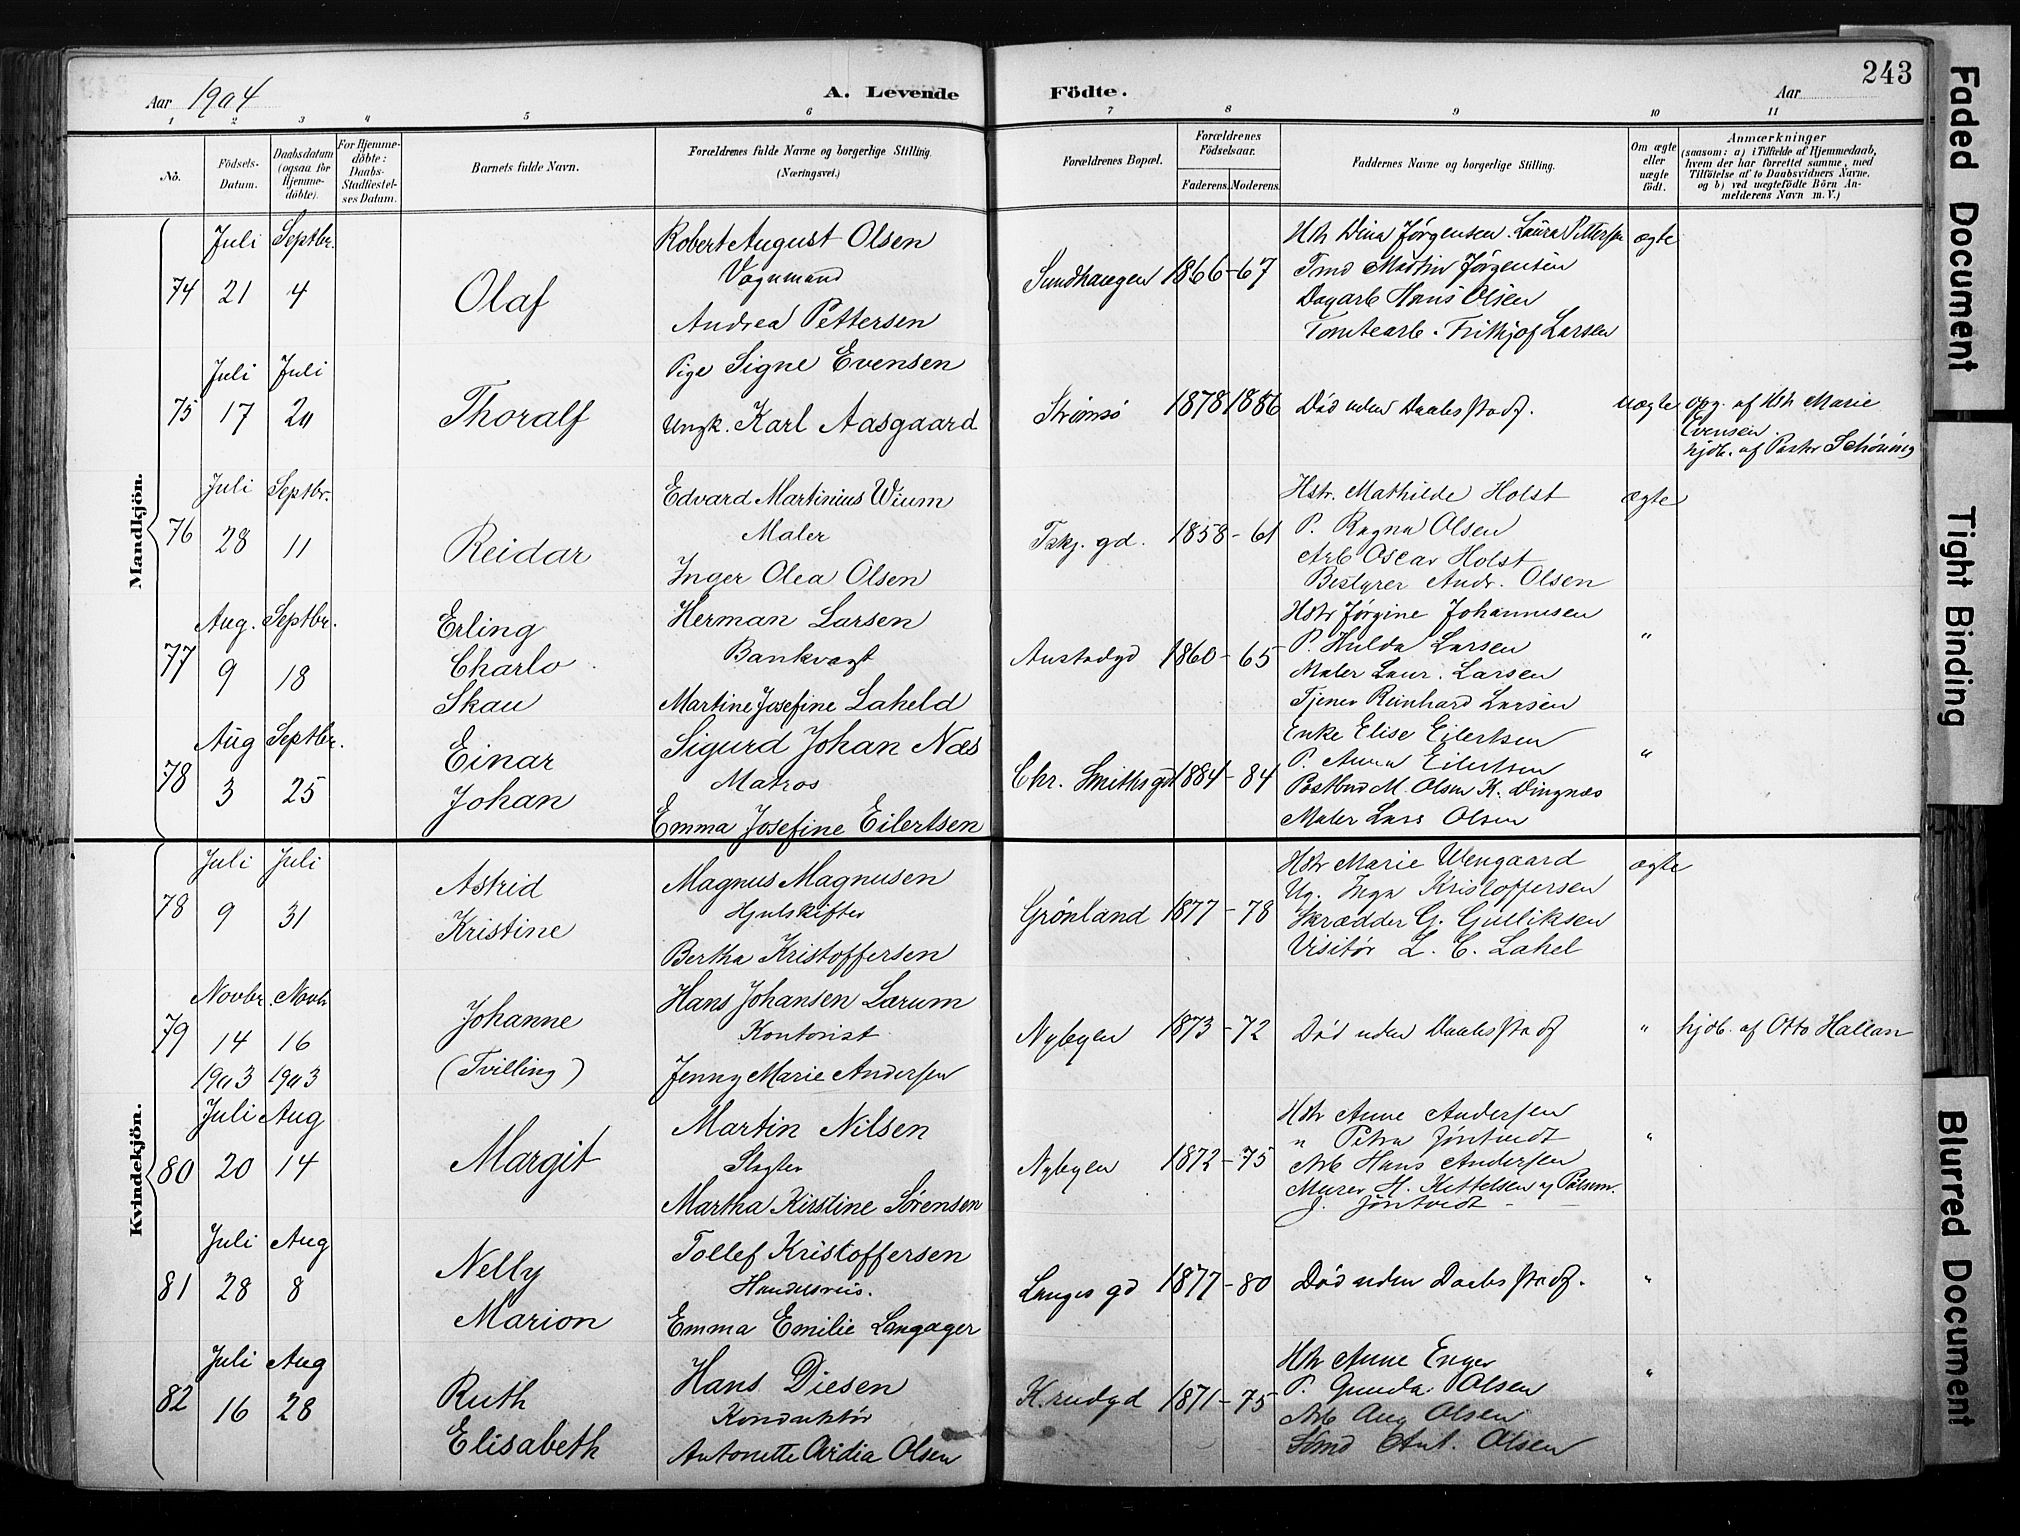 243
Aar 1904
A. Levende Födte.
Aar
1 2 3 4 5 6 7 8 9 10 11
No.
Födsels-Datum.
Daabsdatum (ogsaa for Hjemme-döbte).
For Hjemme-döbte: Daabs-Stadfæstel-ses Datum.
Barnets fulde Navn.
Forældrenes fulde Navne og borgerlige Stilling. (Næringsvei.)
Forældrenes Bopæl.
Forældrenes Födselsaar.
Faderens. Moderens.
Faddernes Navne og borgerlige Stilling.
Om ægte eller uægte födt.
Anmærkninger
(saasom: a) i Tilfælde af Hjemmedaab,
hvem der har forrettet samme, med
Tilföielse af to Daabsvidners Navne,
og b) ved uægtefödte Börn An-
melderens Navn m. V.)
Mandkjön.
74
Juli 21
Septbr. 4
Olaf
Robert August Olsen
Vognmand
Andrea Pettersen
Sundhaugen
1866-67
Hstr Dina Jørgensen. Laura Pettersen
Tmd Martin Jørgensen
Dagarb Hans Olsen
Tomtearb. Frithjof Larsen
ægte
75
Juli 17
Juli 20
Thoralf
Pige Signe Evensen
Ungk. Karl Aasgaard
Strømsø
1878 1886
Død uden Daabsstadf.
uægte
opg. af Hstr Marie
Evensen.
hjdb. af Pastor Schøning
76
Juli 28
Septbr. 11
Reidar
Edvard Martinius Wium
Maler
Inger Olea Olsen
Tskj. gd.
1858-61
Hstr. Mathilde Holst
P. Ragna Olsen
Arb Oscar Holst
Bestyrer Andr. Olsen
ægte
77
Aug. 9
Septbr. 18
Erling
Charlo
Skau
Herman Larsen
Bankvagt
Martine Josefine Laheld
Austadgd
1860-65
Hstr Jørgine Johannesen
P. Hulda Larsen
Maler Laur. Larsen
Tjener Reinhard Larsen
"
78
Aug 3
Septbr. 25
Einar
Johan
Sigurd Johan Næs
Matros
Emma Josefine Eilertsen
Chr. Smithsgd
1884-84
Enke Elise Eilertsen
P. Anna Eilertsen
Postbud M. Olsen K. Dingnæs
Maler Lars Olsen
"
Kvindekjön.
78
Juli 9
Juli 31
Astrid
Kristine
Magnus Magnusen
Hjulskifter
Bertha Kristoffersen
Grönland
1877-78
Hstr Marie Wengaard
Ug. Inga Kristoffersen
Skrædder G. Gulliksen
Visitør L. C. Lahel
ægte
79
Novbr. 14 1903
Novb 16 1903
Johanne
(Tvilling)
Hans Johansen Lærum
Kontorist
Jenny Marie Andersen
Nybyen
1873-72
Död uden Daabsstadf
"
hjdb. af Otto Hallan
80
Juli 20
Aug 14
Margit
Martin Nilsen
Slagter
Martha Kirstine Sørensen
Nybyen
1872-75
Hstr Anne Andersen
" Petra Jøntvedt
Arb Hans Andersen
Murer H. Kittelsen
J. Jøntvedt
"
81
Juli 28
Aug 8
Nelly
Marion
Tollef Kristoffersen
Handelsreis.
Emma Emilie Langager
Langes gd
1877-80
Død uden Daabsstadf.
"
82
Juli 16
Aug 28
Ruth
Elisabeth
Hans Diesen
Konduktør
Antonette Ovidia Olsen
K.rudgd
1871-75
Hstr Anne Enger
P. Gunda Olsen
Arb Aug Olsen
Sömd Ant. Olsen
"
Faded Document
Tight Binding
Blurred Document